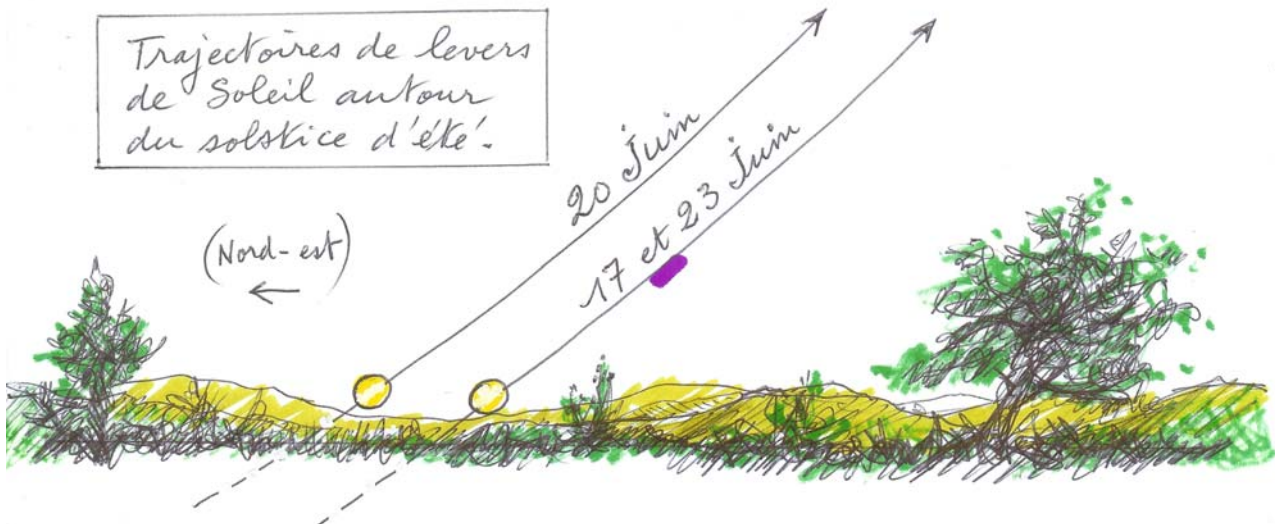 Trajectoires de levers
de Soleil autour
du solstice d'été.
20 Juin
17 et 23 Juin
(Nord-est)